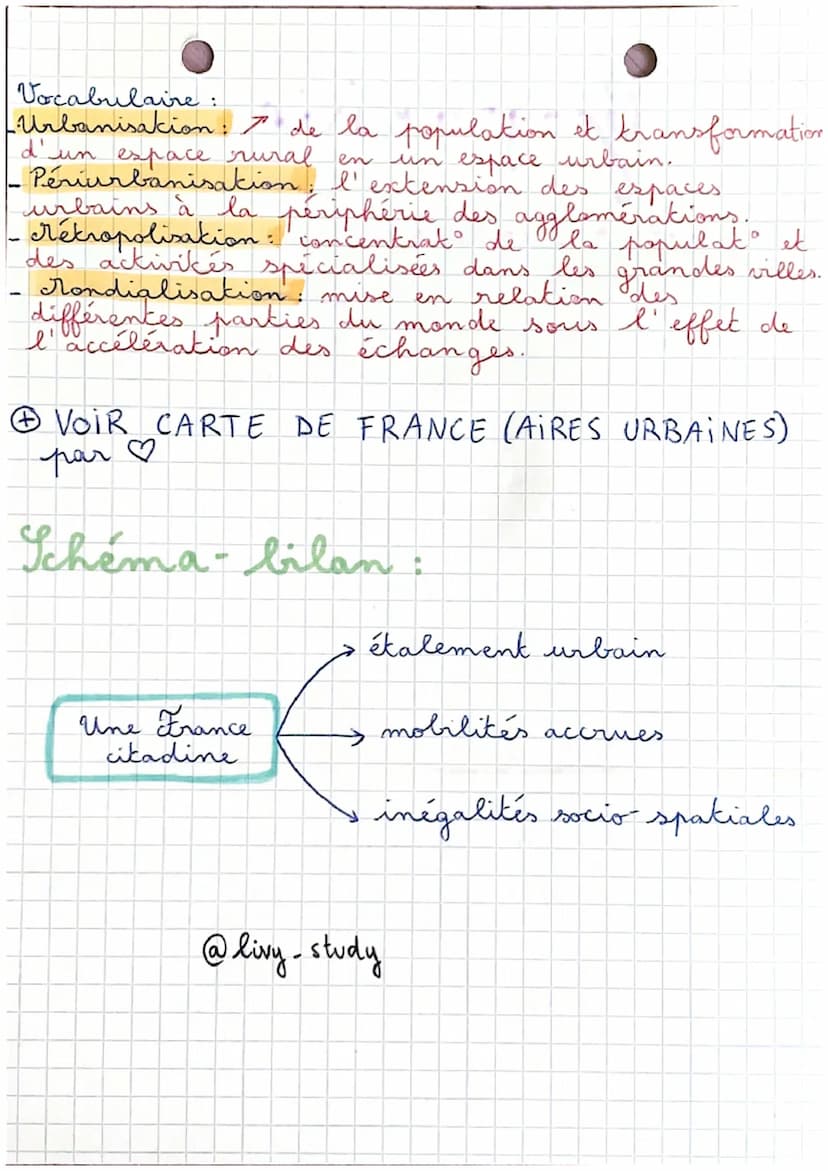 Vocabulaire :
- Urbanisation : ↗ de la population et transformation
d'un espace rural en un espace urbain.
- Périurbanisation : l'extension des espaces
urbains à la périphérie des agglomérations.
- Métropolisation : concentrat° de la populat° et
des activités spécialisées dans les grandes villes.
- Mondialisation : mise en relation des
différentes parties du monde sous l'effet de
l'accélération des échanges.
⊕ VOIR CARTE DE FRANCE (AIRES URBAINES)
par ♡
Schéma-bilan :
étalement urbain
Une France
citadine
mobilités accrues
inégalités socio-spatiales
@livy_study